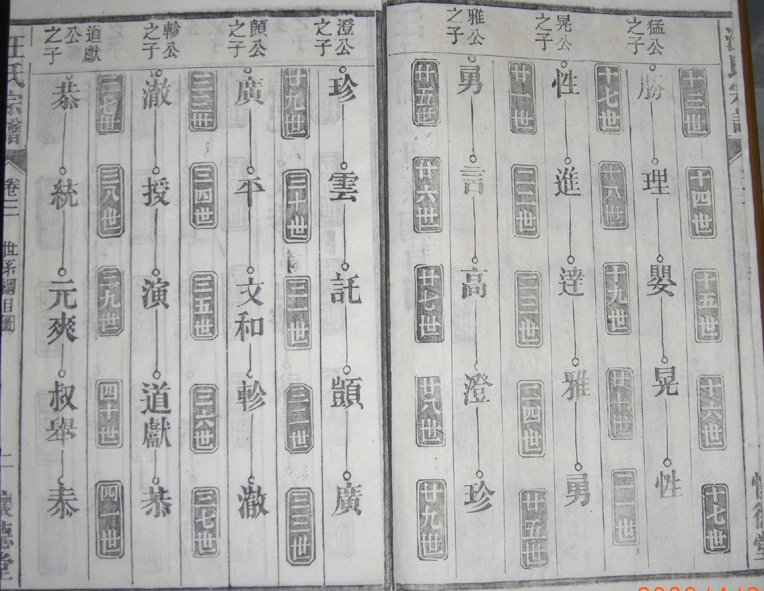 十三世 十四世 十五世 十六世 十七世
猛公之子
勝 理 嬰 晃 性
十七世 十八世 十九世 廿十世 二一世
晃公之子
性 進 達 雅 勇
廿一世 二二世 二三世 二四世 廿五世
雅公之子
勇 言 高 澄 珍
廿五世 廿六世 廿七世 廿八世 廿九世
澄公之子
珍 雲 託 顗 廣
廿九世 三十世 三一世 三二世 三三世
顗公之子
廣 平 文和 軫 澈
三三世 三四世 三五世 三六世 三七世
軫公之子
澈 授 演 道獻 恭
三七世 三八世 三九世 四十世 四一世
道獻公之子
恭 統 元爽 叔舉 泰
汪氏宗譜 卷二 世系綱目圖 二 懷德堂